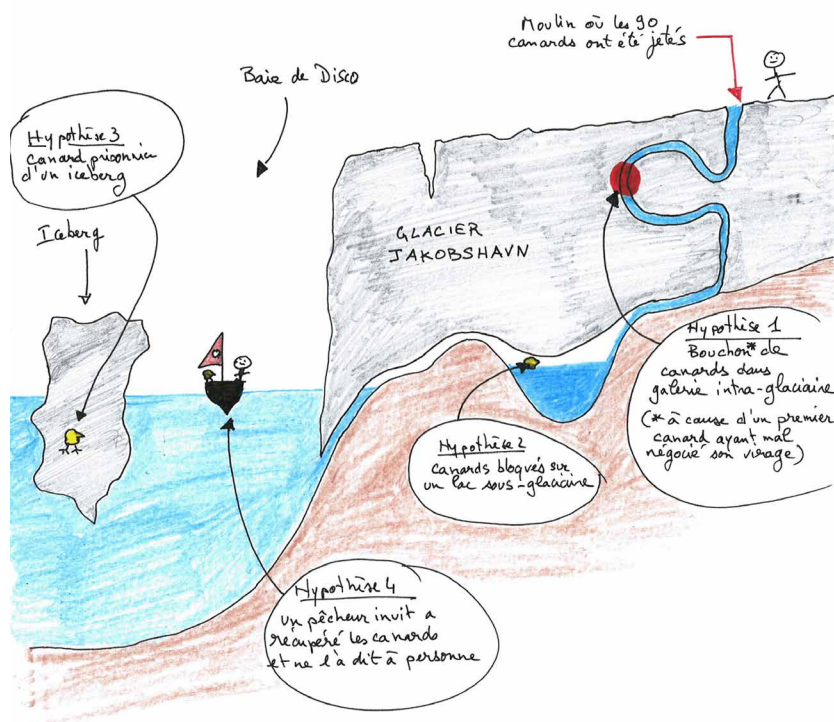 Moulin où les 90
canards ont été jetés
Baie de Disco
Hypothèse 3
canard prisonnier
d'un iceberg
Iceberg
GLACIER
JAKOBSHAVN
Hypothèse 1
Bouchon* de
canards dans
galerie intra-glaciaire
(* à cause d'un premier
canard ayant mal
négocié son virage)
Hypothèse 2
canards bloqués sur
un lac sous-glaciaire
Hypothèse 4
un pêcheur inuit a
récupéré les canards
et ne l'a dit à personne